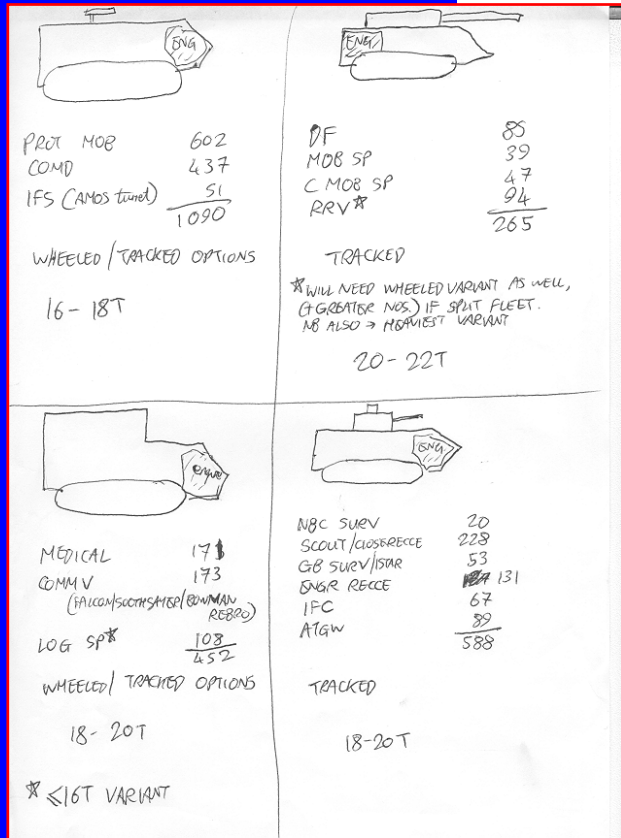 ENG
PROT MOB 602
COMD 437
IFS (AMOS turret) 51
1090
WHEELED/TRACKED OPTIONS
16-18T
ENG
DF 85
MOB SP 39
C MOB SP 47
RRV☆ 94
265
TRACKED
☆WILL NEED WHEELED VARIANT AS WELL,
(+GREATER NOS.) IF SPLIT FLEET.
NB ALSO → HEAVIEST VARIANT
20-22T
engine
MEDICAL 171
COMMV 173
(FALCON/SOOTHSAYER/BOWMAN
REBRO)
LOG SP☆ 108
452
WHEELED/TRACKED OPTIONS
18-20T
☆ ≤16T VARIANT
ENG
NBC SURV 20
SCOUT/CLOSE RECCE 228
GB SURV/ISTAR 53
ENGR RECCE 131
IFC 67
ATGW 89
588
TRACKED
18-20T